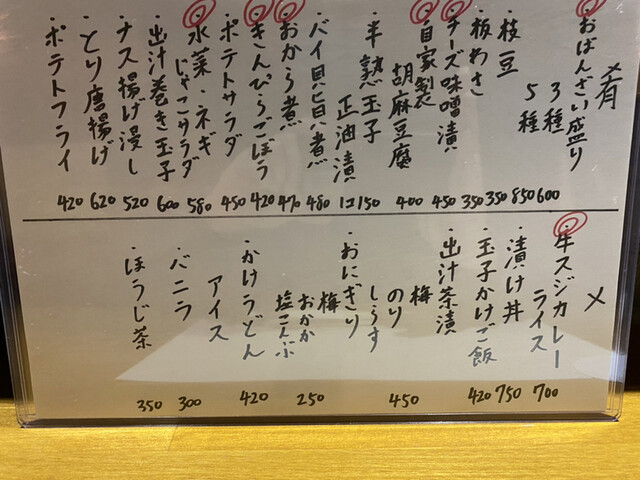 肴
・おばんざい盛り
3種 600
5種 850
・枝豆 350
・板わさ 350
・チーズ味噌漬 450
・自家製
胡麻豆腐 400
・半熟玉子
正油漬 1コ150
・バイ貝旨煮 480
・おから煮 470
・きんぴらごぼう 420
・ポテトサラダ 450
・水菜・ネギ
じゃこサラダ 580
・出汁巻き玉子 600
・ナス揚げ浸し 520
・とり唐揚げ 620
・ポテトフライ 420
〆
・牛スジカレー
ライス 700
・漬け丼 750
・玉子かけご飯 420
・出汁茶漬
梅
のり
しらす 450
・おにぎり
梅
おかか
塩こんぶ 250
・かけうどん 420
アイス
・バニラ 300
・ほうじ茶 350